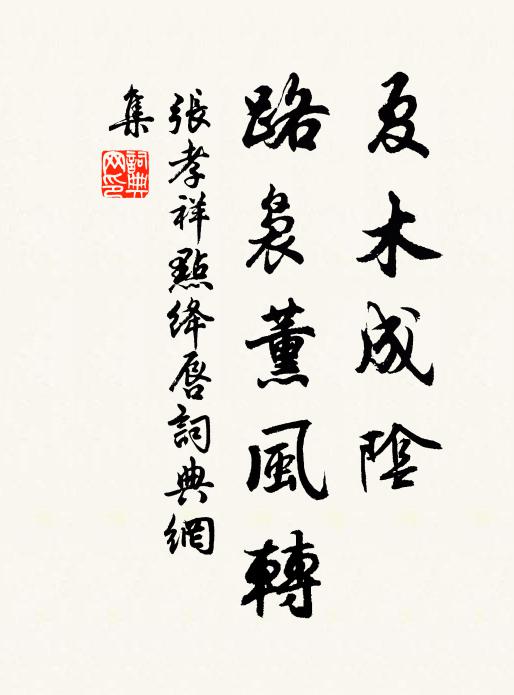 夏木成陰
路裊薰風轉
張孝祥點绛唇詞典網
集
詞典
网印